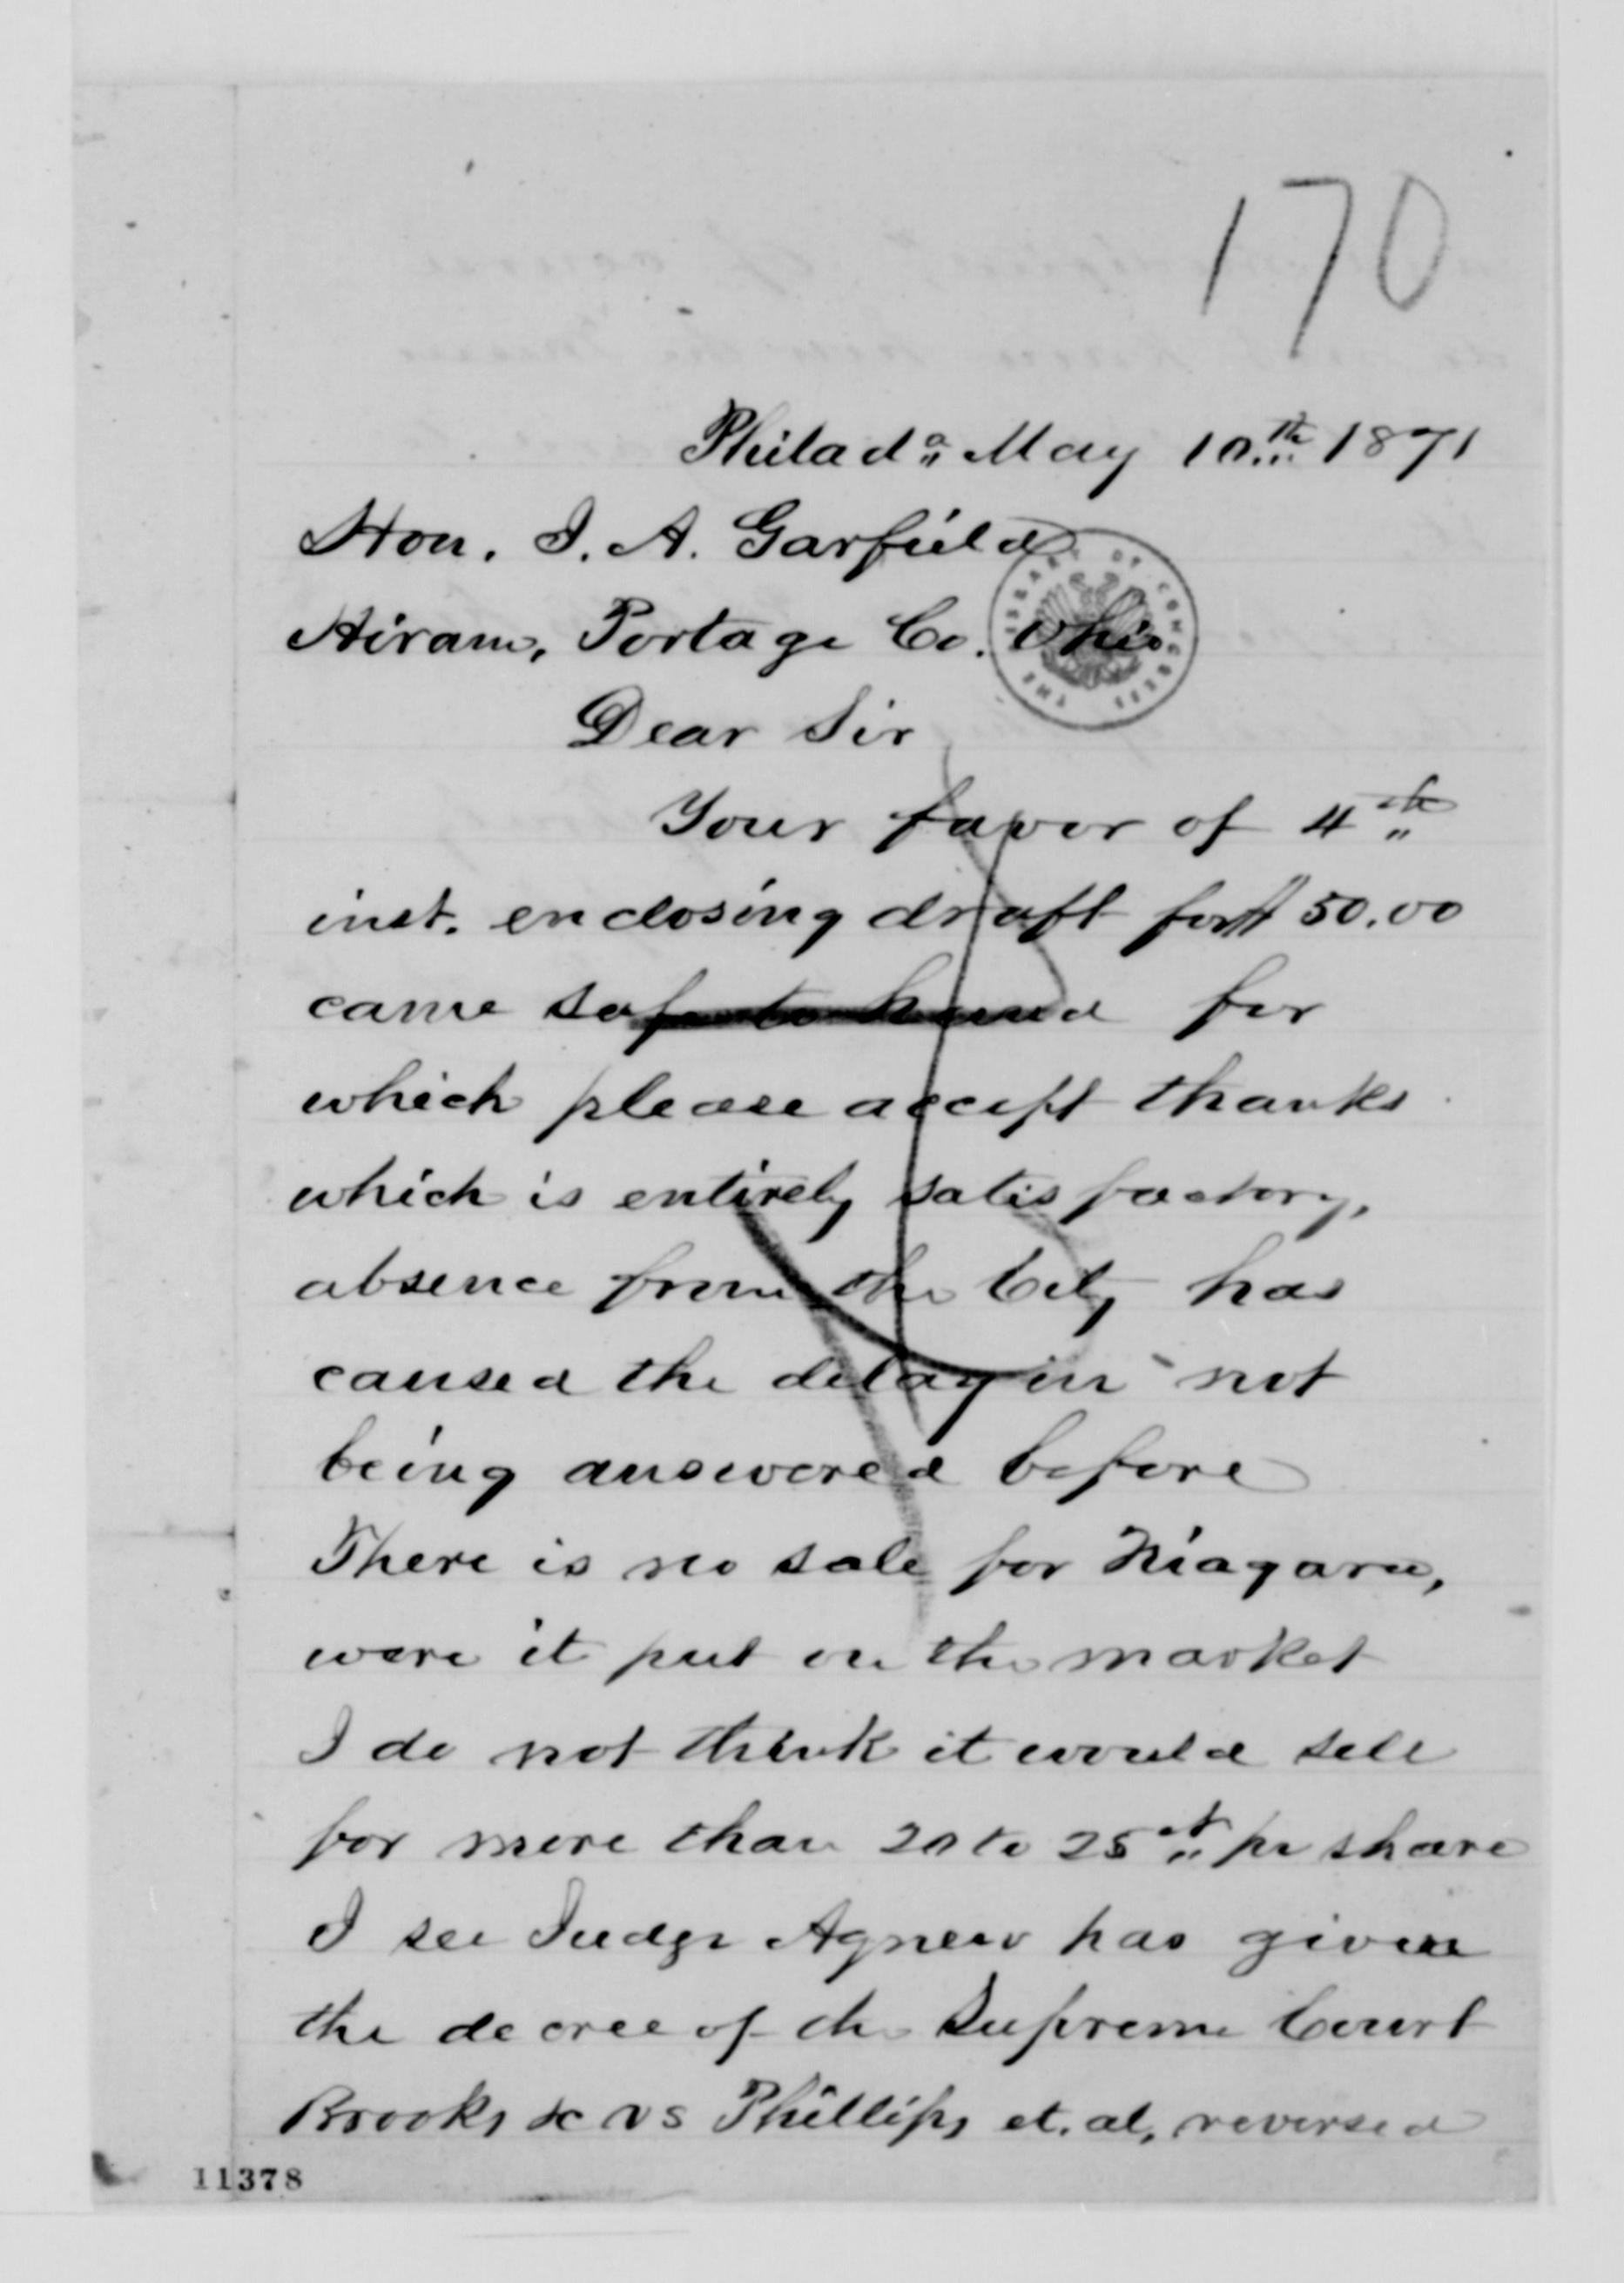 170
Philada May 10th 1871
Hon. J. A. Garfield
Hiram, Portage Co. Ohio
THE LIBRARY OF CONGRESS
Dear Sir
Your favor of 4th
inst. enclosing draft for $50.00
came safe to hand for
which please accept thanks
which is entirely satisfactory,
absence from the City has
caused the delay in not
being answered before
There is no sale for Niagara,
were it put on the market
I do not think it would sell
for more than 20 to 25ct pr share
I see Judge Agnew has given
the decree of the Supreme Court
Brooks &c vs Phillips et. al, reversed
11378